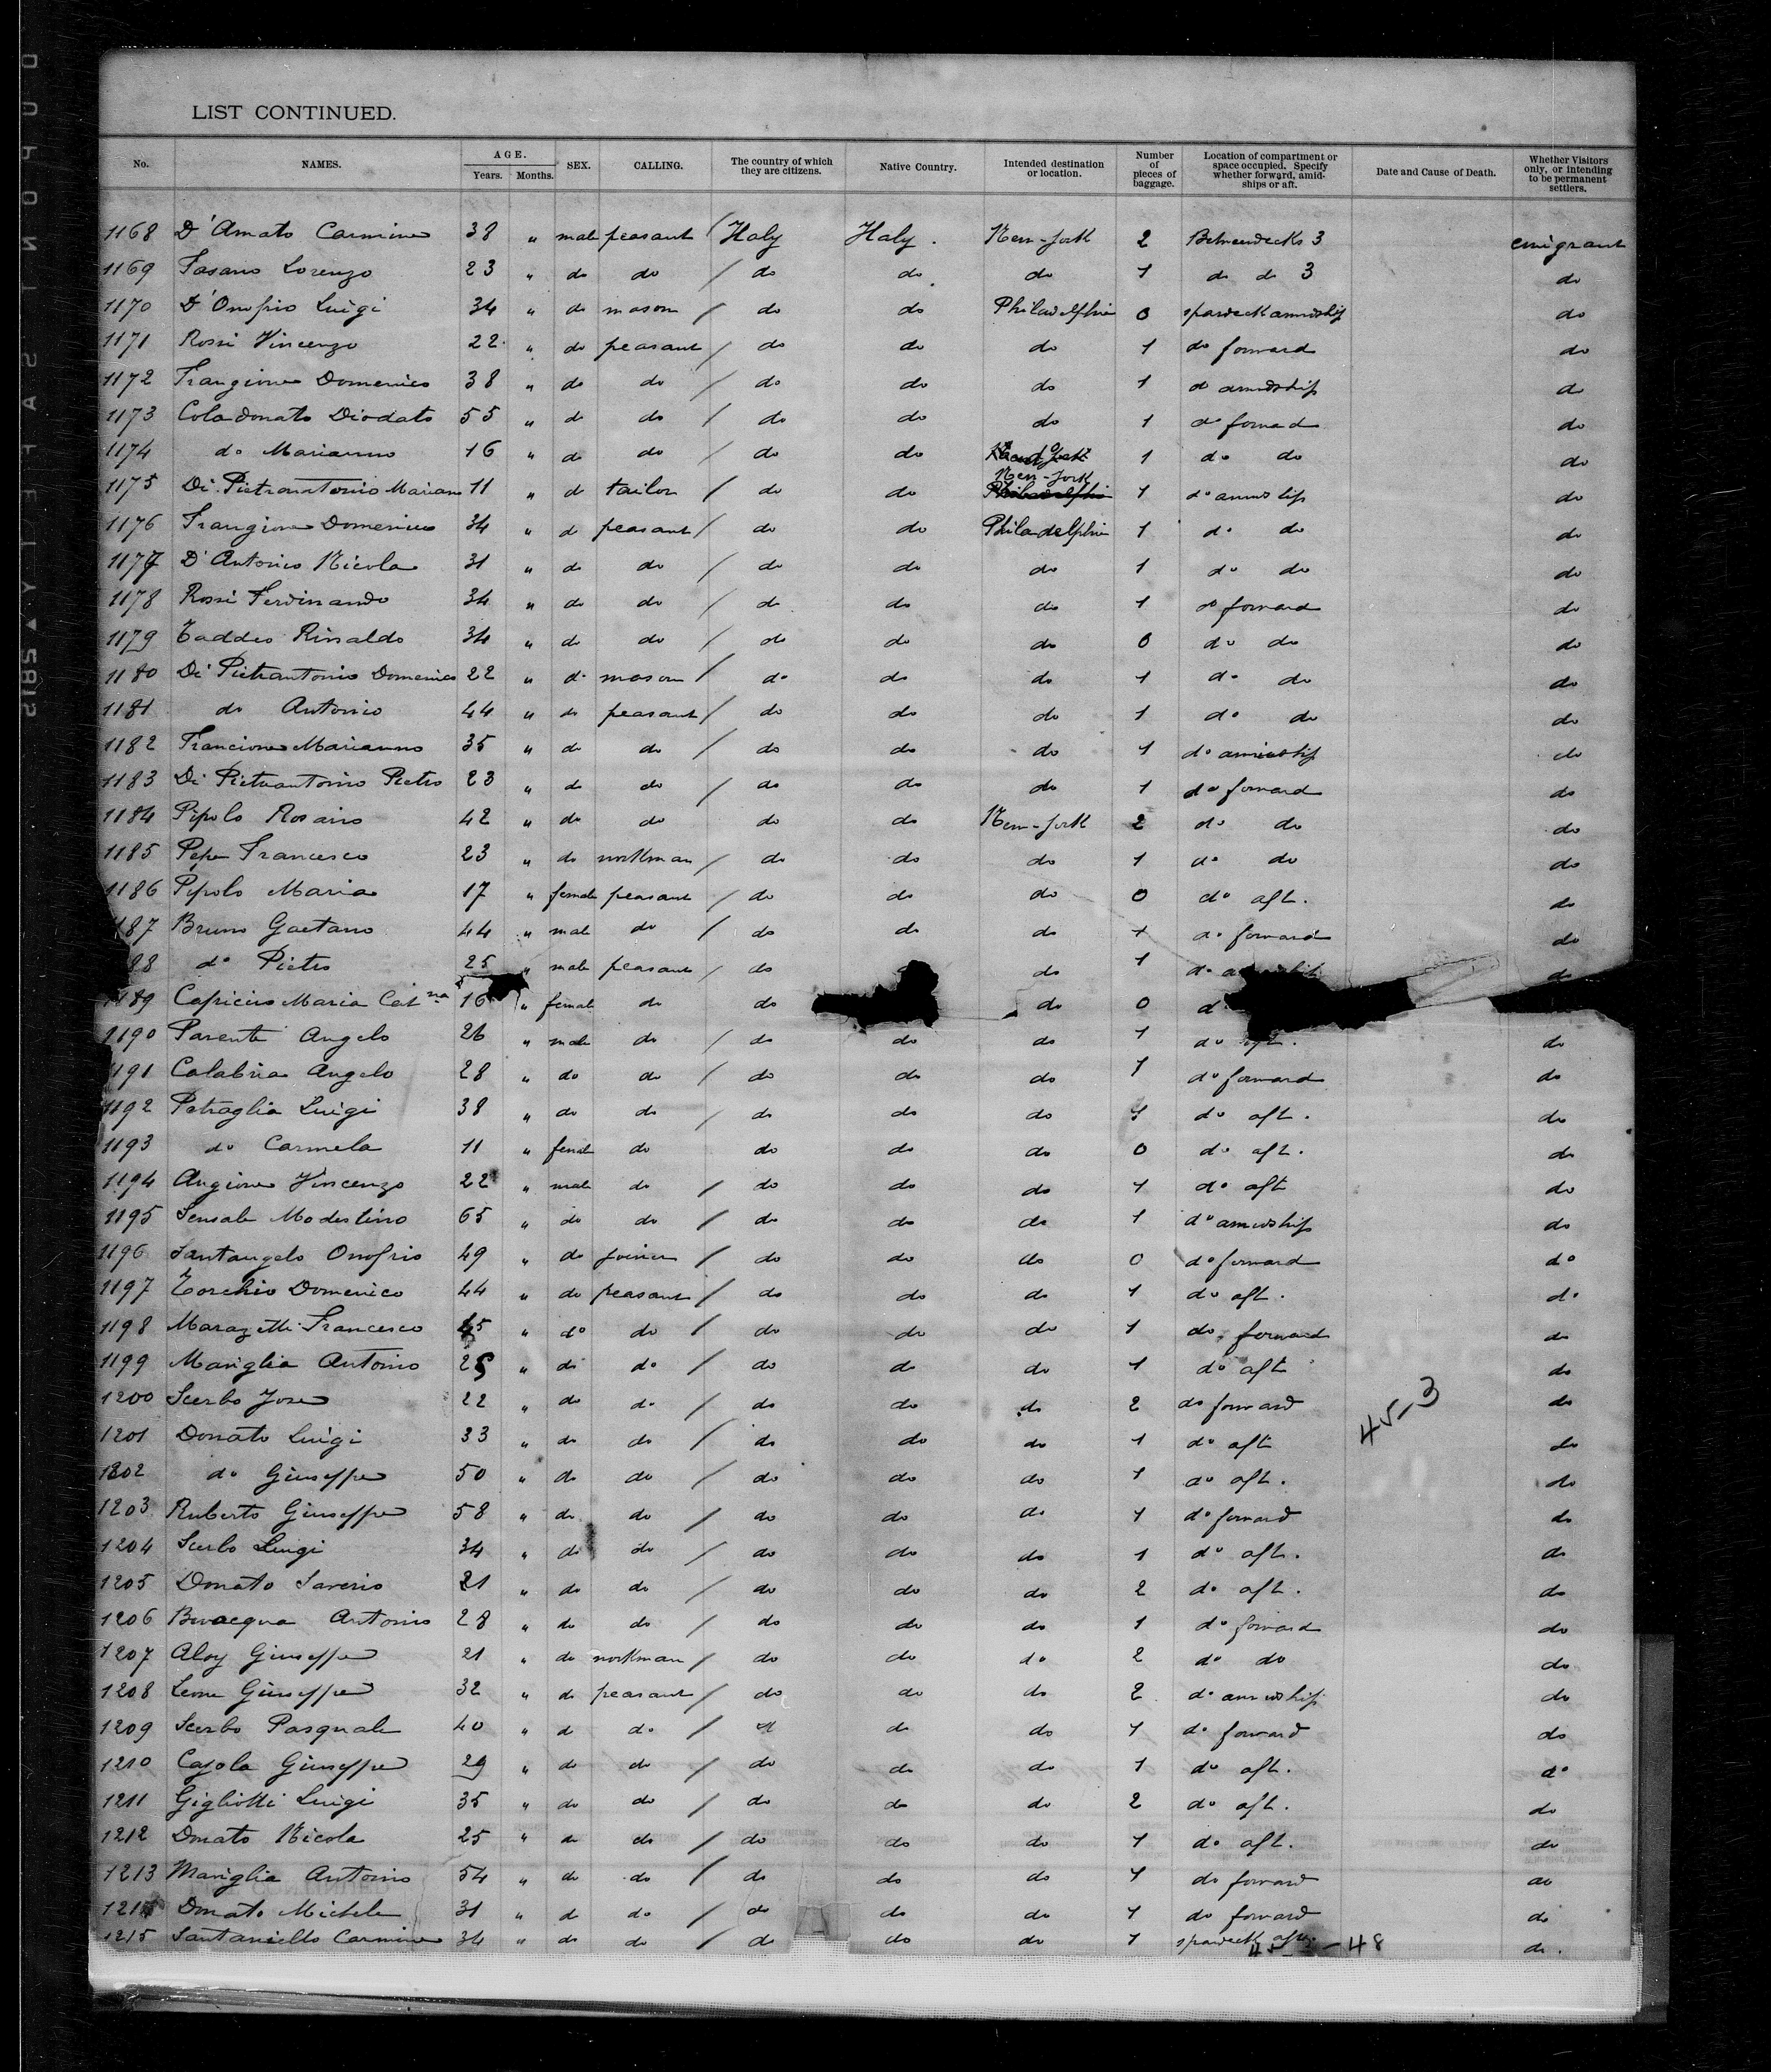 LIST CONTINUED.
No. NAMES. AGE. Years. Months. SEX. CALLING. The country of which they are citizens. Native Country. Intended destination or location. Number of pieces of baggage. Location of compartment or space occupied. Specify whether forward, amidships or aft. Date and Cause of Death. Whether Visitors only, or intending to be permanent settlers.
1168 D'Amato Carmine 38 " male peasant / Italy Italy. New-York 2 Betweendecks 3 emigrant
1169 Fasano Lorenzo 23 " do do / do do do 1 do do 3 do
1170 D'Onofrio Luigi 34 " do mason / do do Philadelphia 0 spardeck amidship do
1171 Rossi Vincenzo 22 " do peasant / do do do 1 do forward do
1172 Frangione Domenico 38 " do do / do do do 1 do amidship do
1173 Coladonato Diodato 55 " do do / do do do 1 do forward do
1174 do Marianno 16 " do do / do do 1 do do do
1175 Di Pietrantonio Mariano 11 " do tailor / do do New-York 1 do amidship do
1176 Frangione Domenico 34 " do peasant / do do Philadelphia 1 do do do
1177 D'Antonio Nicola 31 " do do / do do do 1 do do do
1178 Rossi Ferdinando 34 " do do / do do do 1 do forward do
1179 Taddeo Rinaldo 34 " do do / do do do 0 do do do
1180 Di Pietrantonio Domenico 22 " do mason / do do do 1 do do do
1181 do Antonio 44 " do peasant / do do do 1 do do do
1182 Francione Marianno 35 " do do / do do do 1 do amidship do
1183 Di Pietrantonio Pietro 23 " do do / do do do 1 do forward do
1184 Pipolo Rosario 42 " do do do do New-York 2 do do do
1185 Pepe Francesco 23 " do workman / do do do 1 do do do
1186 Pipolo Maria 17 " female peasant / do do do 0 do aft. do
187 Bruno Gaetano 44 " male do / do do do 1 do forward do
88 do Pietro 25 " male peasant / do do 1 do do
1189 Capricio Maria Cat na 16 " female do do do 0 d
1190 Parente Angelo 26 " male do / do do do 1 do aft. do
1191 Calabria Angelo 28 " do do / do do do 1 do forward do
1192 Petraglia Luigi 38 " do do / do do do 1 do aft. do
1193 do Carmela 11 " female do do do do 0 do aft. do
1194 Angione Vincenzo 22 " male do / do do do 1 do aft do
1195 Sensale Modestino 65 " do do / do do do 1 do amidship do
1196 Santangelo Onofrio 49 " do joiner / do do do 0 do forward do
1197 Torchio Domenico 44 " do peasant / do do do 1 do aft. do
1198 Marazetti Francesco 45 " do do / do do do 1 do forward do
1199 Maniglia Antonio 25 " do do / do do do 1 do aft do
1200 Scerbo Jose 22 " do do / do do do 2 do forward do
45-3
1201 Donato Luigi 33 " do do / do do do 1 do aft do
1202 do Giuseppe 50 " do do / do do do 1 do aft. do
1203 Ruberto Giuseppe 58 " do do / do do do 1 do forward do
1204 Scerbo Luigi 34 " do do / do do do 1 do aft. do
1205 Donato Saverio 21 " do do / do do do 2 do aft. do
1206 Bevacqua Antonio 28 " do do / do do do 1 do forward do
1207 Aloy Giuseppe 21 " do workman / do do do 2 do do do
1208 Leone Giuseppe 32 " do peasant / do do do 2 do amidship do
1209 Scerbo Pasquale 40 " do do / do do do 1 do forward do
1210 Cajola Giuseppe 29 " do do / do do do 1 do aft. do
1211 Gigliotti Luigi 35 " do do / do do do 2 do aft. do
1212 Donato Nicola 25 " do do / do do do 1 do aft. do
1213 Maniglia Antonio 54 " do do / do do do 1 do forward do
121 Donato Michele 31 " do do / do do do 1 do forward do
1215 Santaniello Carmine 34 " do do / do do do 1 spardeck aft. do.
-48